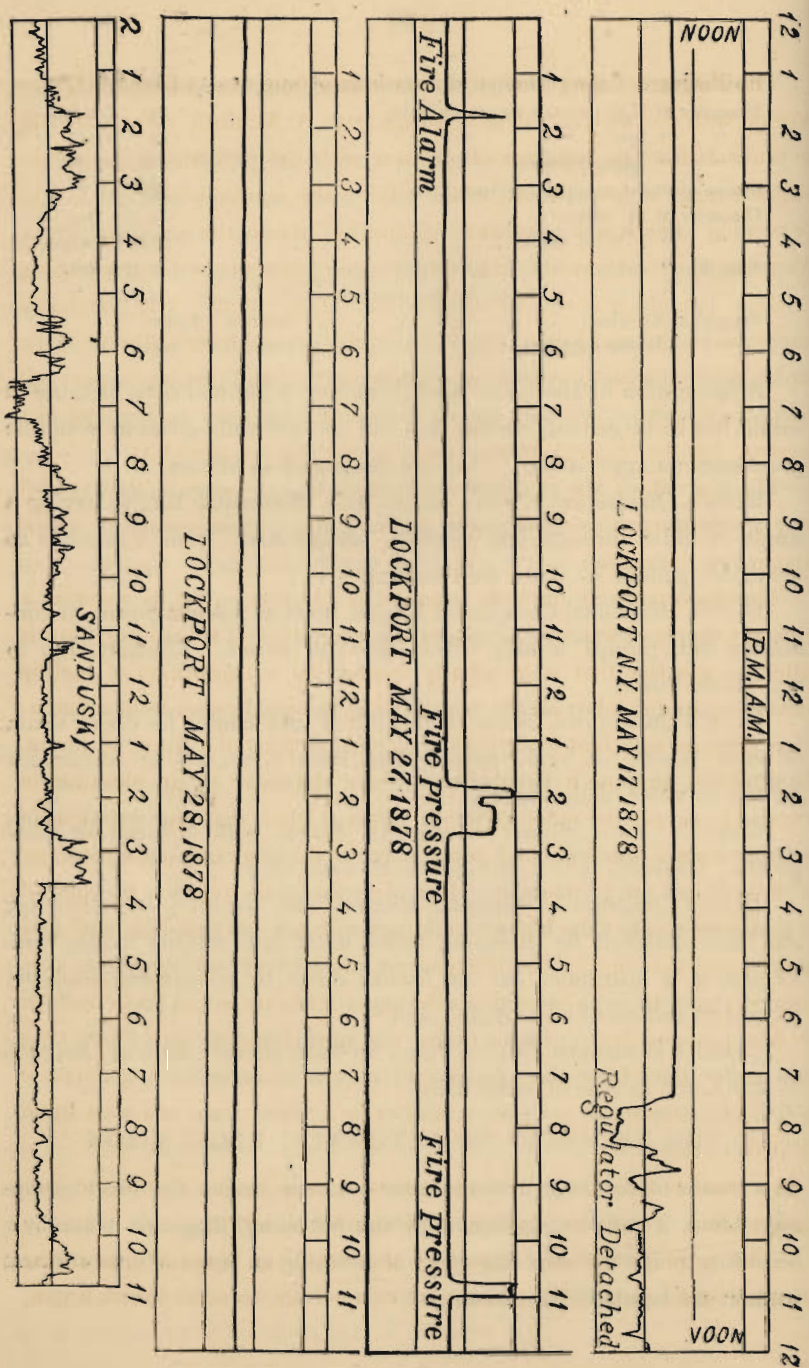 12 1 2 3 4 5 6 7 8 9 10 11 12 1 2 3 4 5 6 7 8 9 10 11 12
P.M. A.M.
NOON NOON
LOCKPORT N.Y. MAY 17, 1878
Regulator Detached
1 2 3 4 5 6 7 8 9 10 11 12 1 2 3 4 5 6 7 8 9 10 11
Fire Alarm Fire pressure Fire pressure
LOCKPORT MAY 27, 1878
1 2 3 4 5 6 7 8 9 10 11 12 1 2 3 4 5 6 7 8 9 10 11
LOCKPORT MAY 28, 1878
2 1 2 3 4 5 6 7 8 9 10 11 12 1 2 3 4 5 6 7 8 9 10 11
SANDUSKY